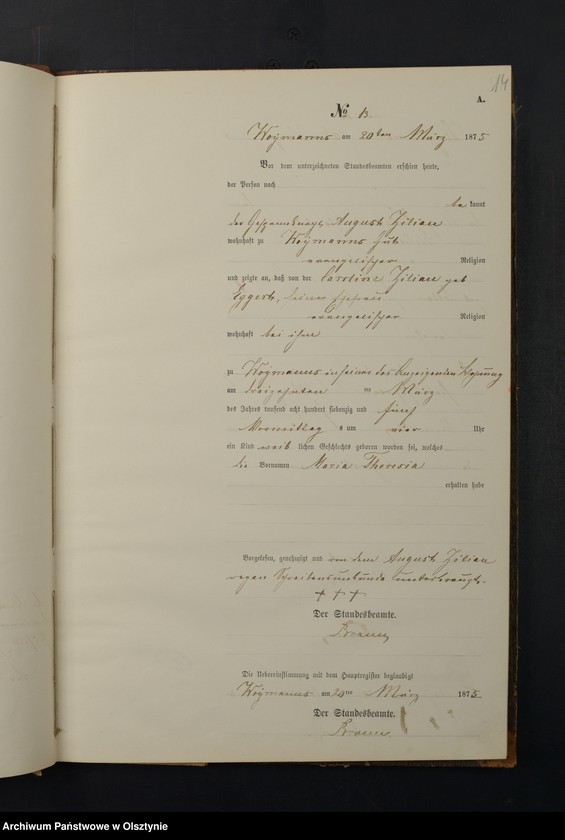 14
A.
No 13.
Woymanns am 20ten März 1875
Vor dem unterzeichneten Standesbeamten erschien heute,
der Person nach
be kannt
der August Zilian
wohnhaft zu Woymanns
evangelischer Religion
und zeigte an, daß von der Caroline Zilian geb
Eggert, seiner Ehefrau
evangelischer Religion
wohnhaft bei ihm
zu Woymanns in seiner des Anzeigenden Wohnung
am dreizehnten ten März
des Jahres tausend acht hundert siebenzig und fünf
Vormittag s um vier Uhr
ein Kind weib lichen Geschlechts geboren worden sei, welches
die Vornamen Maria Theresia
erhalten habe
Vorgelesen, genehmigt und von dem August Zilian
wegen Schreibensunkunde unterkreuzt.
+ + +
Der Standesbeamte.
Die Uebereinstimmung mit dem Hauptregister beglaubigt
Woymanns am 20 ten März 1875
Der Standesbeamte.
Archiwum Państwowe w Olsztynie